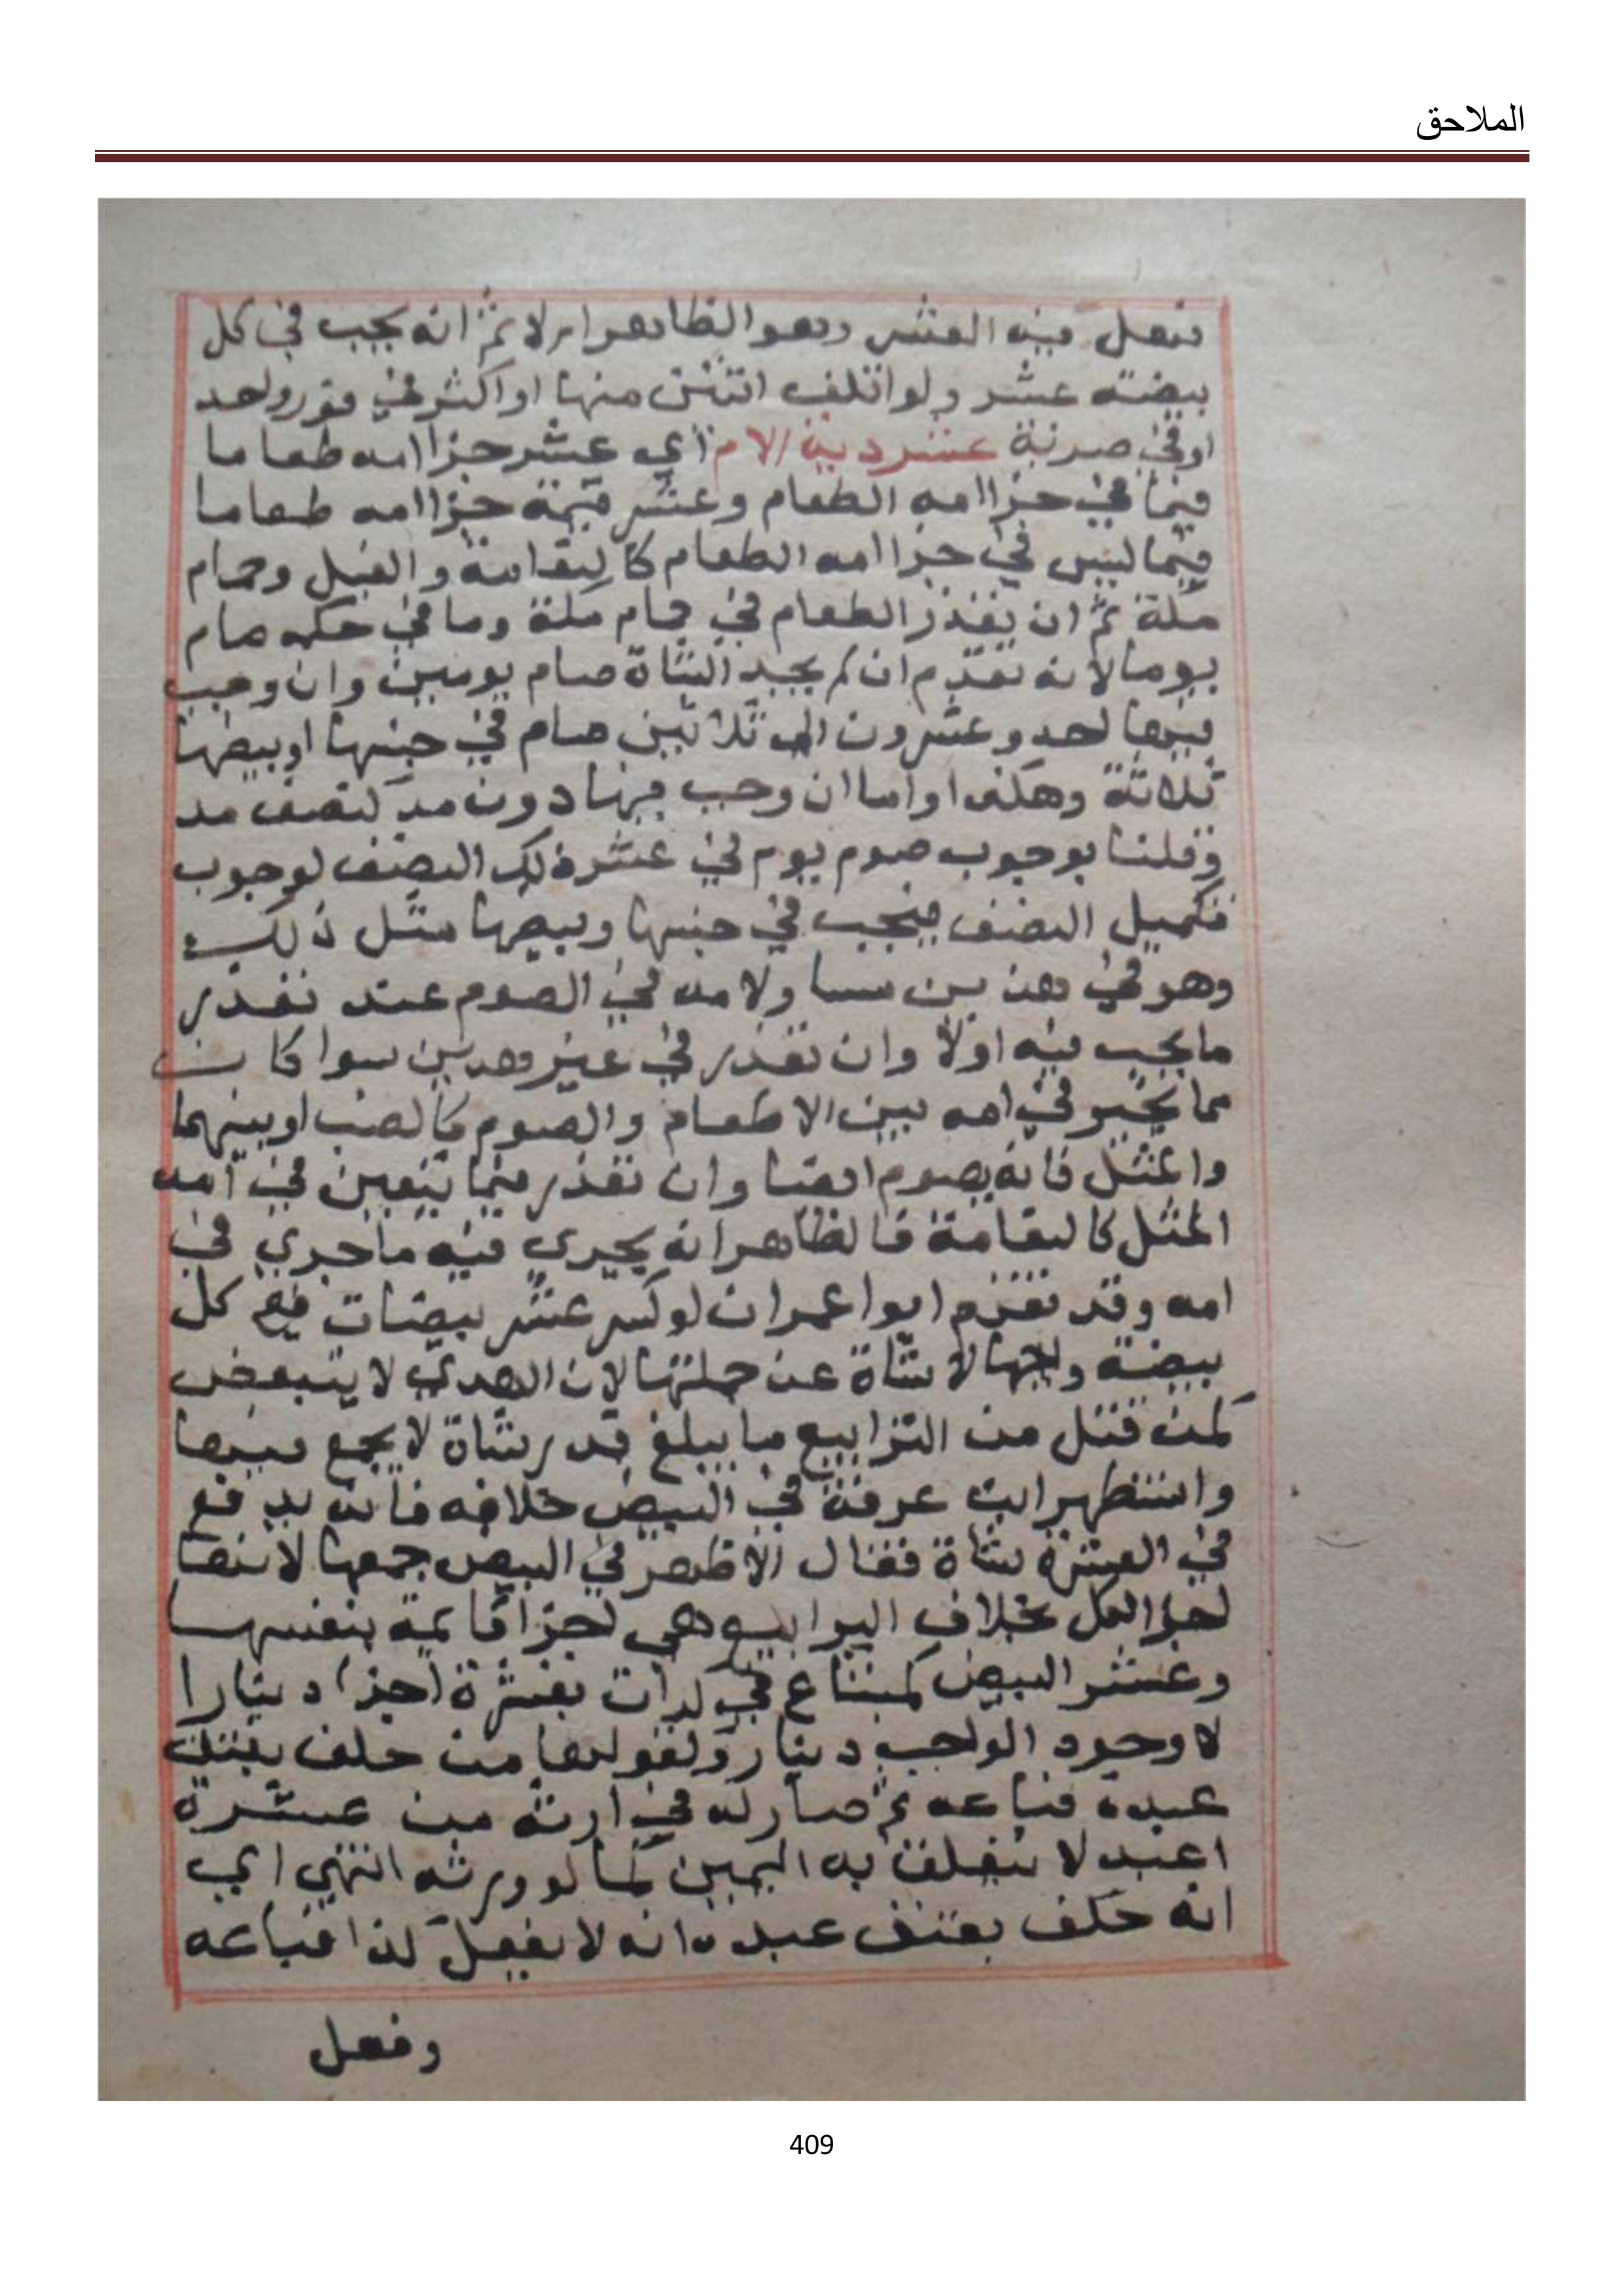 الملاحق
فيه العشر وهو الظاهر ام لا ثم انه يجب في كل
بيضة عشر ولو اتلف اثنتين منها او اكثر في فور واحد
او في ضربة عشر دية الام اي عشر جزا امه طعاما
فيما في جزا امه الطعام وعشر قيمة جزا امه طعاما
فيما ليس في جزا امه الطعام كالنعامة والفيل وحمام
مكة ثم ان تعذر الطعام في حمام مكة وما في حكمه صام
يوما لانه تقدم ان لم يجد الشاة صام يومين وان وجب
فيها احد وعشرون الى ثلاثين صام في جنينها او بيضها
ثلاثة وهكذا واما ان وجب فيها دون مد كنصف مد
وقلنا بوجوب صوم يوم في عشر ذلك النصف لوجوب
تكميل النصف فيجب في جنينها وبيضها مثل ذلك
وهو في هذين ولامه في الصوم عند تعذر
ما يجب فيه اولا وان تعذر في غير هذين سوا كان
مما يخير في امه بين الاطعام والصوم كالضب او بينهما
والمثل فانه يصوم ايضا وان تعذر فيما يتعين في امه
المثل كالنعامة فالظاهر انه يجري فيه ما جري في
امه وقد تقدم ابوا عمران لو كسر عشر بيضات ففي كل
بيضة واجبها لا شاة عن جملتها لان الهدي لا يتبعض
كمن قتل من اليرابيع ما يبلغ قدر شاة لا يجمع فيها
واستظهر ابن عرفة في البيض خلافه فانه يدفع
في العشرة شاة فقال الاظهر في البيض جمعها لانها
اجزا الكل بخلاف اليرابيع هي اجزا قائمة بنفسها
وعشر البيض كمبتاع في كرات بعشرة اجزا دينارا
لا وجود الواجب دينار ولقولها من حلف بعتق
عبده فباعه ثم صار له في ارثه من عشرة
اعبد لا تنعلق به اليمين كما لو ورثه انتهي اي
انه حلف بعتق عبده انه لا يفعل كذا فباعه
وفعل
409